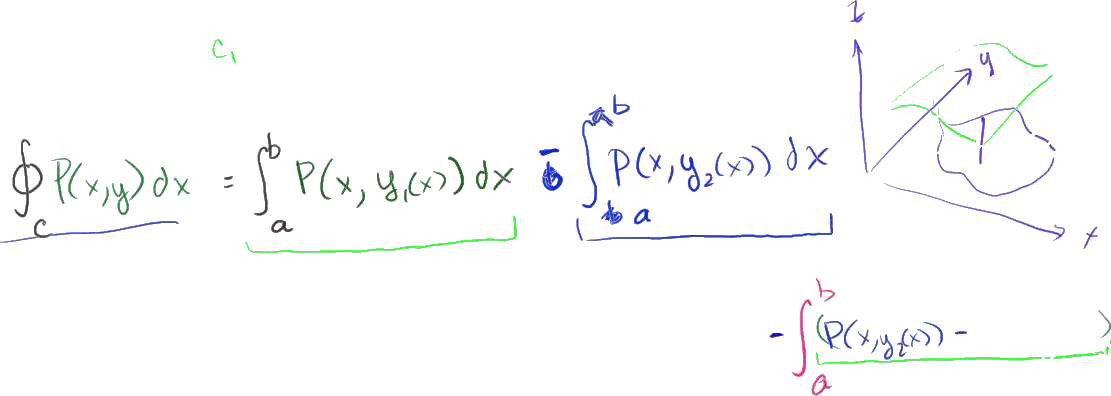 c₁
z
y
∮_c P(x,y) dx = ∫_a^b P(x, y₁(x)) dx - ∫_a^b P(x, y₂(x)) dx
x
- ∫_a^b (P(x, y₂(x)) - )